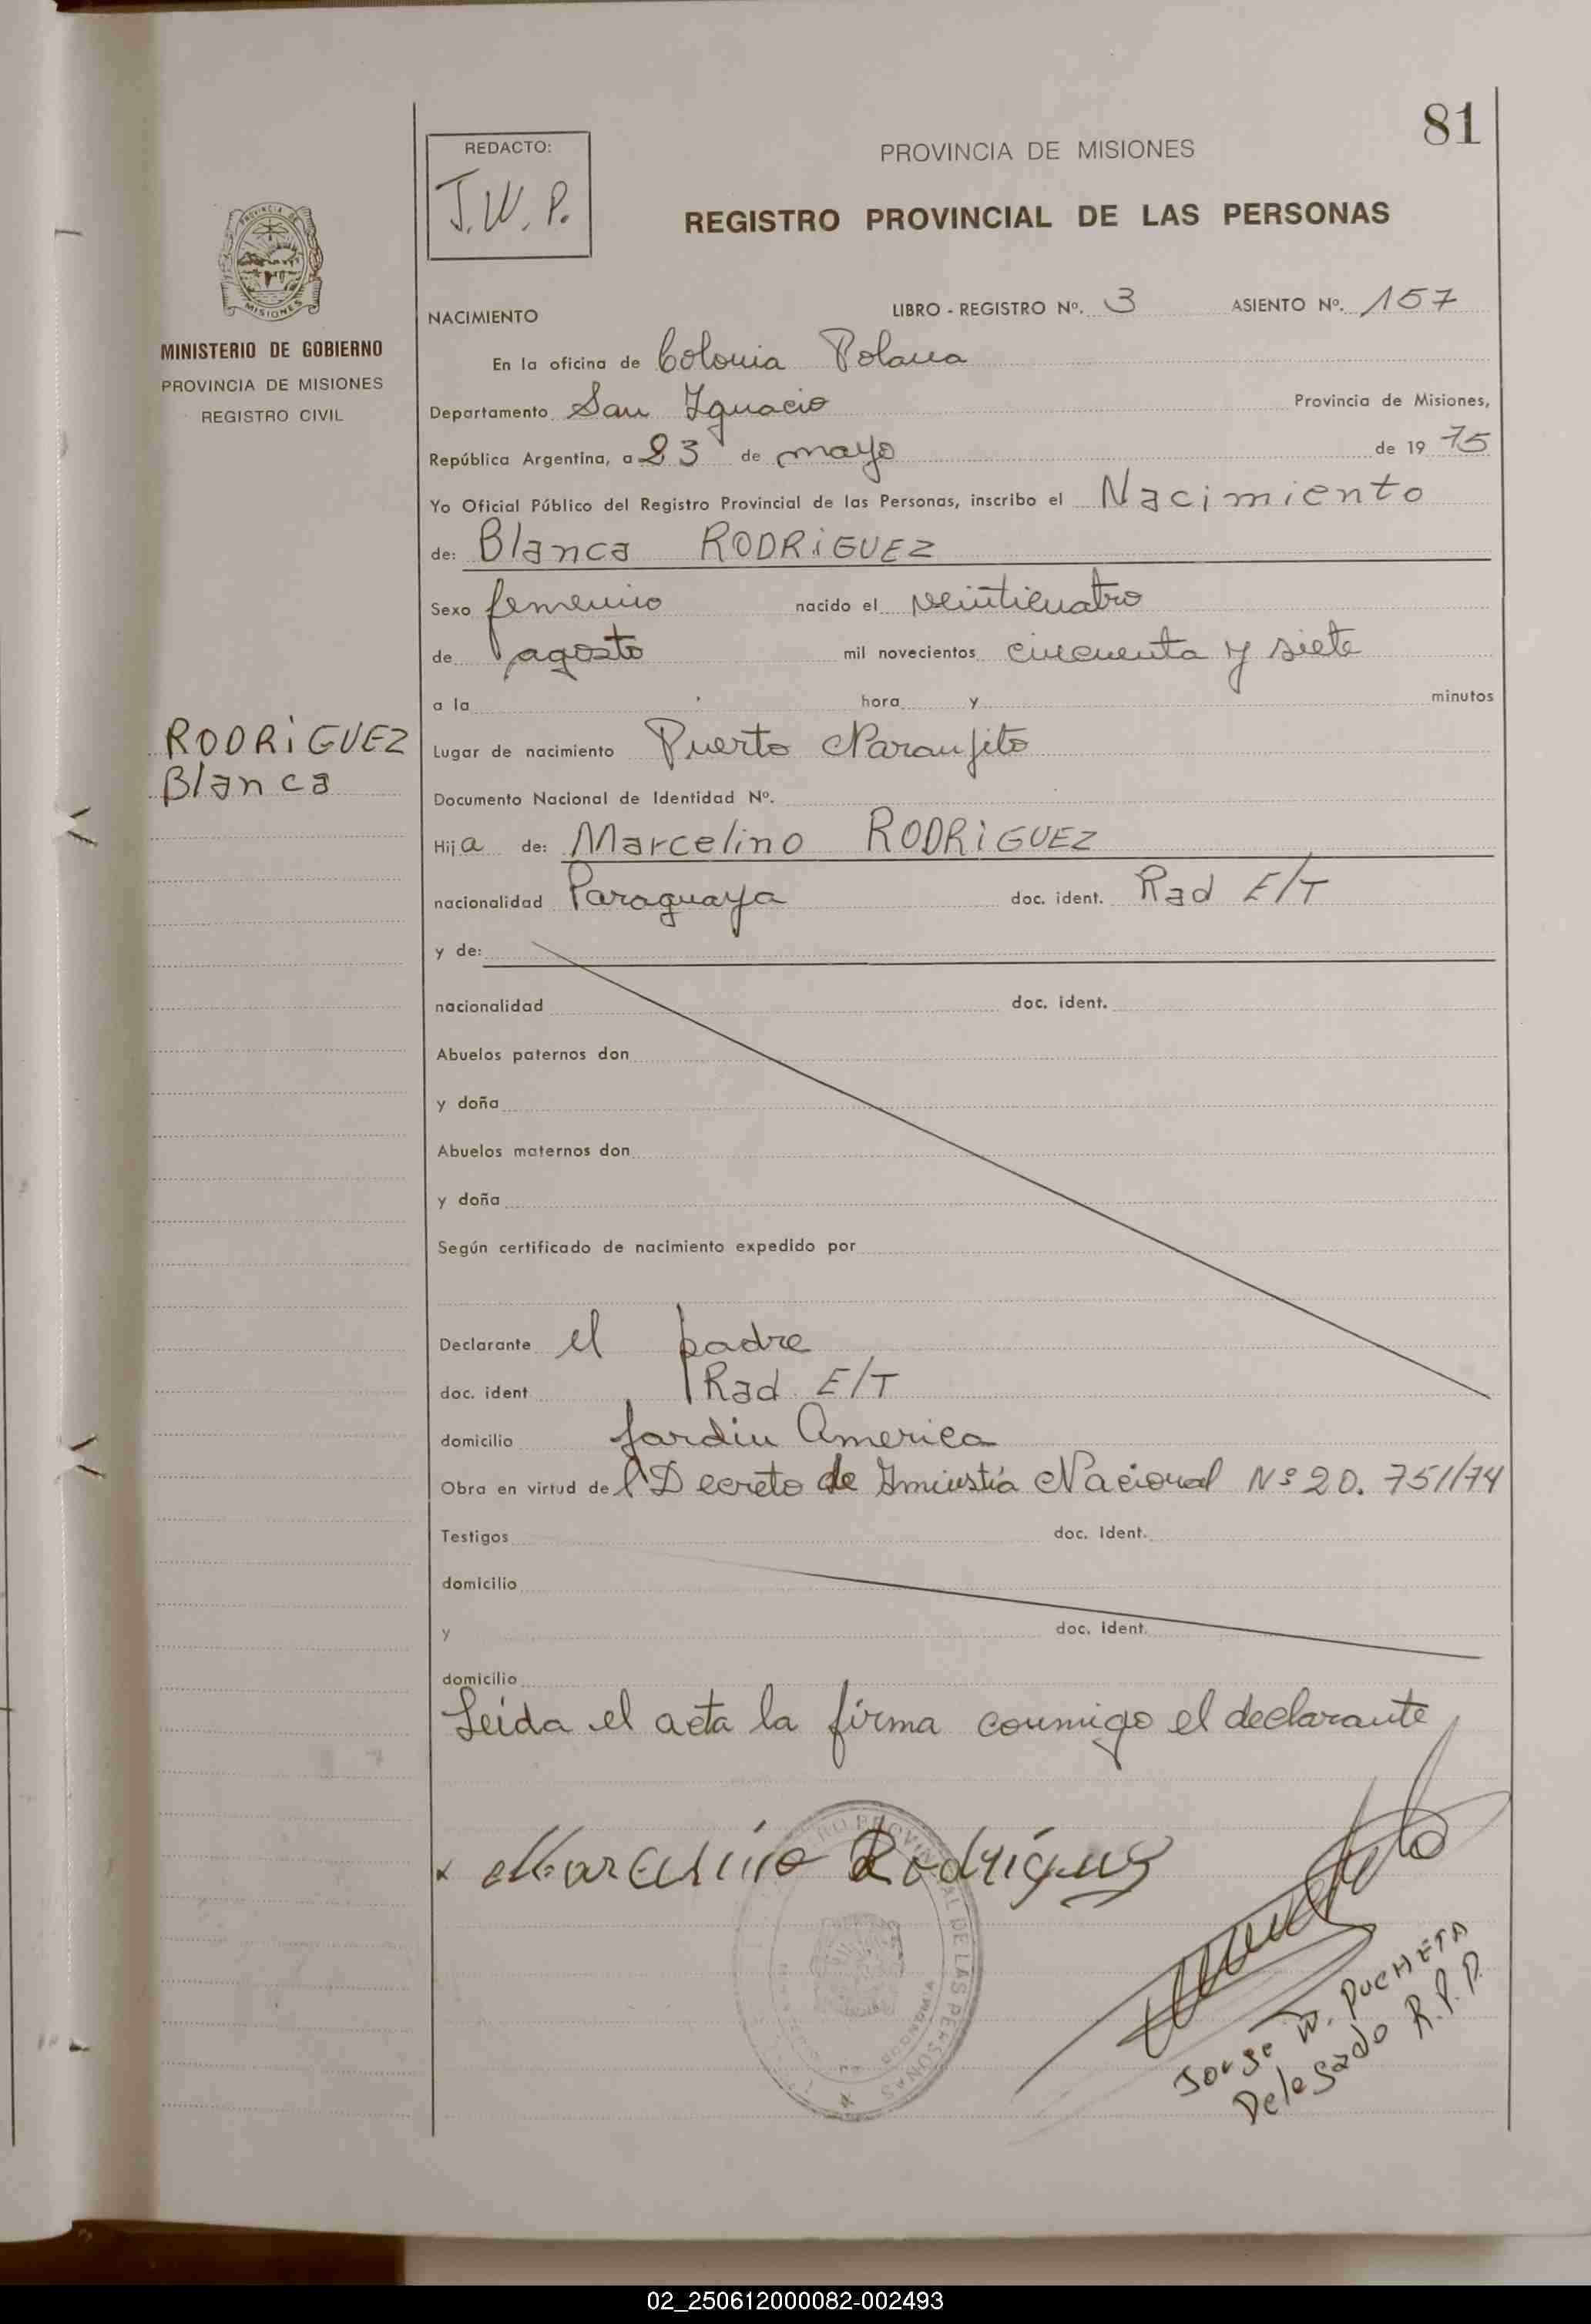 81
REDACTO:
J.W.P.
PROVINCIA DE MISIONES
REGISTRO PROVINCIAL DE LAS PERSONAS
PROVINCIA DE
MISIONES
MINISTERIO DE GOBIERNO
PROVINCIA DE MISIONES
REGISTRO CIVIL
NACIMIENTO LIBRO - REGISTRO Nº. 3 ASIENTO Nº. 157
En la oficina de Colonia Polana
Departamento San Ignacio Provincia de Misiones,
República Argentina, a 23 de mayo de 19 75
Yo Oficial Público del Registro Provincial de las Personas, inscribo el Nacimiento
de: Blanca RODRIGUEZ
Sexo femenino nacido el veinticuatro
de agosto mil novecientos cincuenta y siete
a la hora y minutos
RODRIGUEZ
Blanca
Lugar de nacimiento Puerto Naranjito
Documento Nacional de Identidad Nº.
Hija de: Marcelino RODRIGUEZ
nacionalidad Paraguaya doc. ident. Rad E/T
y de:
nacionalidad doc. ident.
Abuelos paternos don
y doña
Abuelos maternos don
y doña
Según certificado de nacimiento expedido por
Declarante el padre
doc. ident Rad E/T
domicilio Jardin America
Obra en virtud del Decreto de Amnistía Nacional Nº 20.751/74
Testigos doc. ident.
domicilio
y doc. ident.
domicilio
Leida el acta la firma conmigo el declarante
x Marcelino Rodríguez
PROVINCIAL DE LAS PERSONAS
Jorge W. PUCHETA
Delegado R.P.P.
02_250612000082-002493